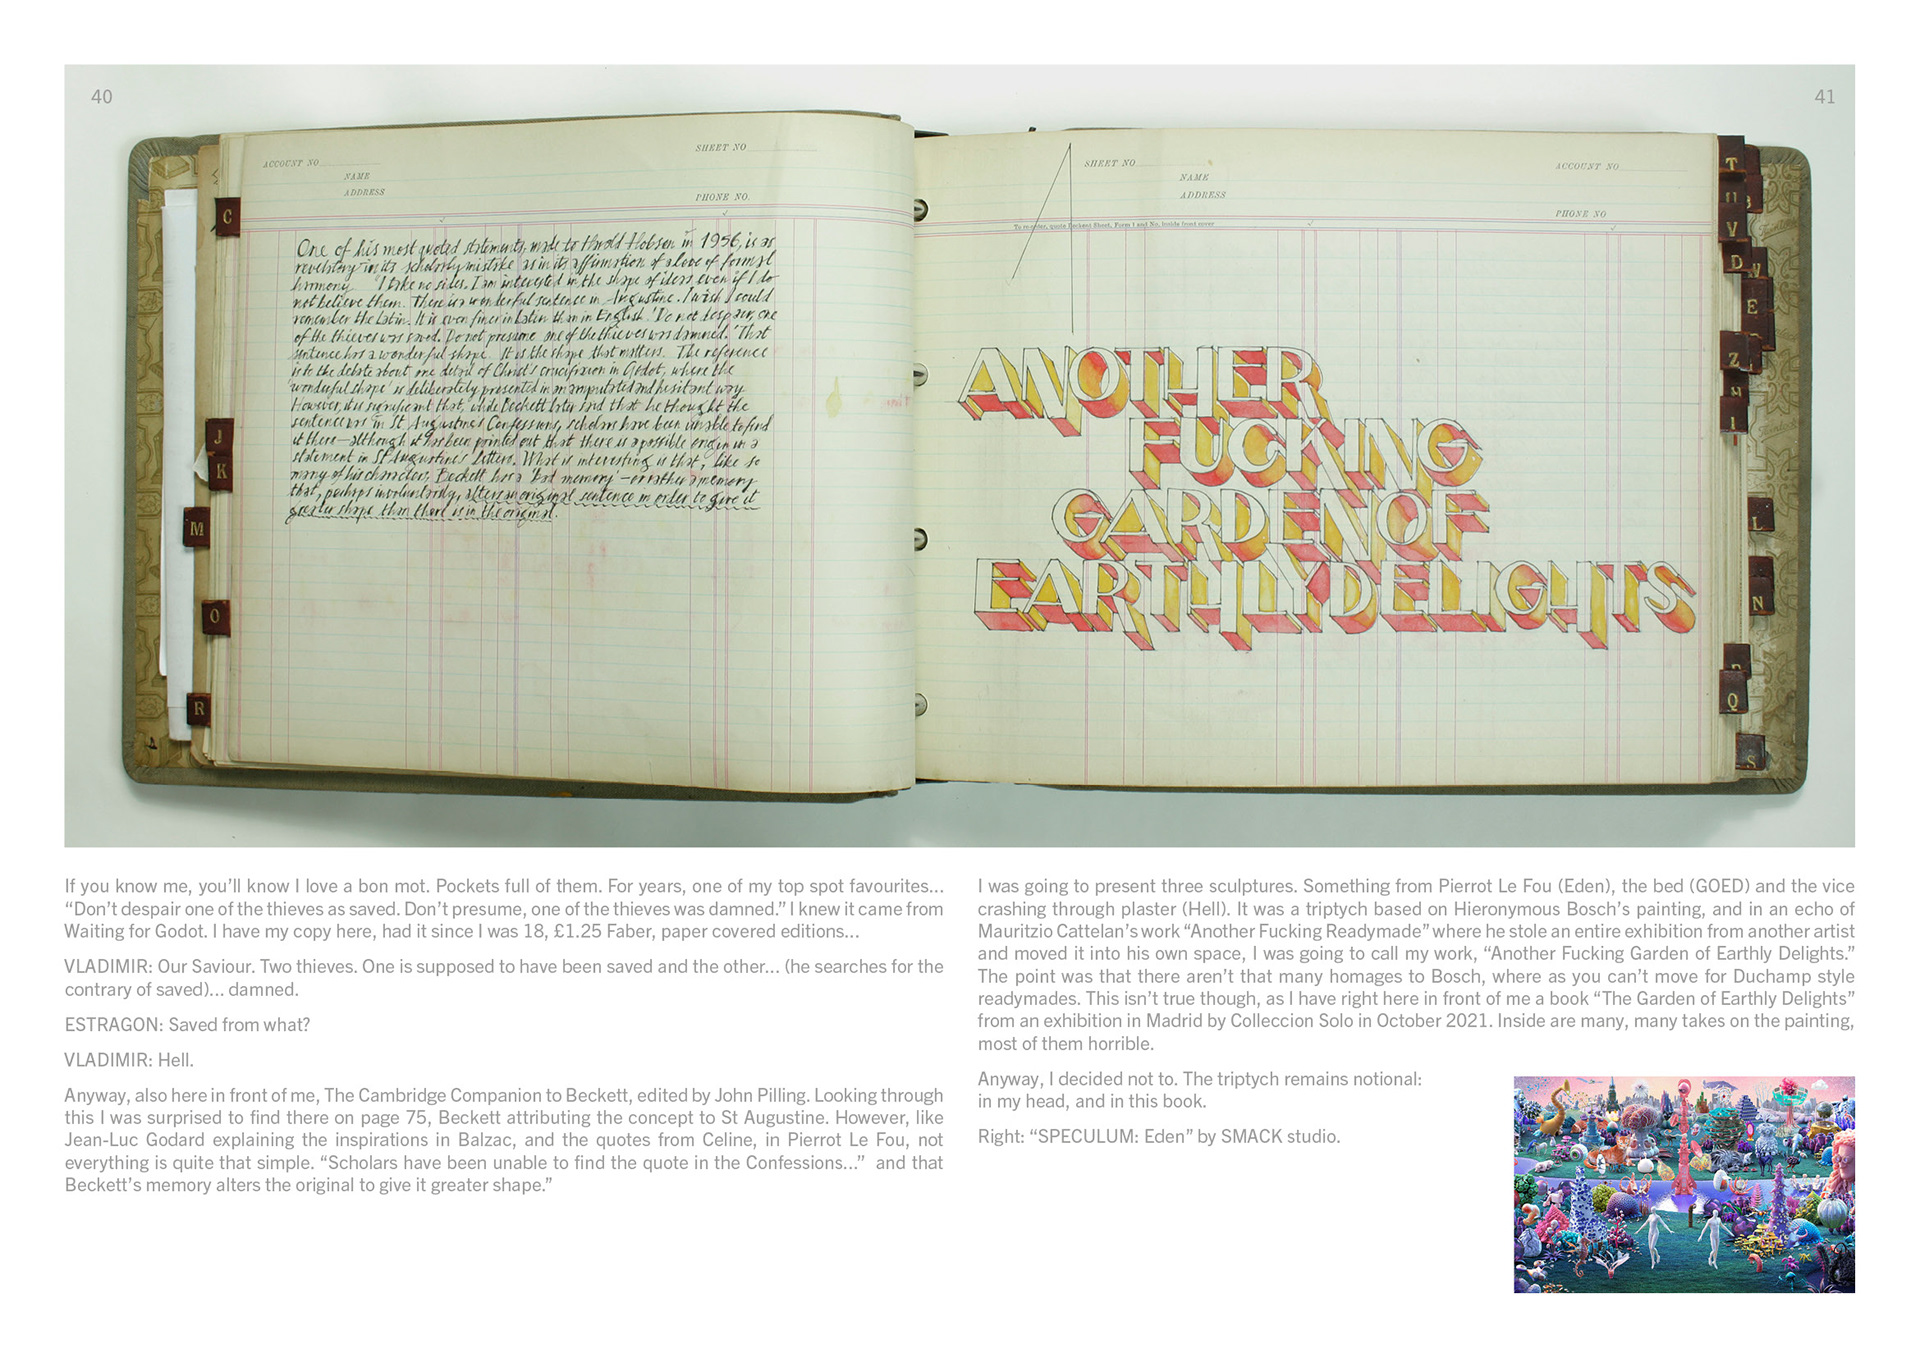 40
41
SHEET NO
ACCOUNT NO
NAME
ADDRESS
PHONE NO.
C
J
K
M
O
R
One of his most quoted statements, made to Harold Hobson in 1956, is as
revelatory in its scholarly mistake as in its affirmation of a love of formal
harmony 'I take no sides. I am interested in the shape of ideas even if I do
not believe them. There is a wonderful sentence in Augustine. I wish I could
remember the Latin. It is even finer in Latin than in English. 'Do not despair, one
of the thieves was saved. Do not presume one of the thieves was damned.' That
sentence has a wonderful shape. It is the shape that matters. The reference
is to the debate about one detail of Christ's crucifixion in Godot, where the
'wonderful shape' is deliberately presented in an amputated and hesitant way.
However, it is significant that, while Beckett later said that he thought the
sentence was in St Augustine's Confessions, scholars have been unable to find
it there—although it has been pointed out that there is a possible origin in a
statement in St Augustine's Letters. What is interesting is that, like so
many of his characters, Beckett has a 'bad memory' – or rather a memory
that, perhaps involuntarily, alters an original sentence in order to give it
greater shape than there is in the original.
SHEET NO
ACCOUNT NO
NAME
ADDRESS
PHONE NO
To re-order, quote Sheet, Form 1 and No. inside front cover
ANOTHER
FUCKING
GARDEN OF
EARTHLY DELIGHTS
T
U
V
D
W
E
Z
I
L
N
Q
S
If you know me, you'll know I love a bon mot. Pockets full of them. For years, one of my top spot favourites...
“Don't despair one of the thieves as saved. Don't presume, one of the thieves was damned.” I knew it came from
Waiting for Godot. I have my copy here, had it since I was 18, £1.25 Faber, paper covered editions...
VLADIMIR: Our Saviour. Two thieves. One is supposed to have been saved and the other... (he searches for the
contrary of saved)... damned.
ESTRAGON: Saved from what?
VLADIMIR: Hell.
Anyway, also here in front of me, The Cambridge Companion to Beckett, edited by John Pilling. Looking through
this I was surprised to find there on page 75, Beckett attributing the concept to St Augustine. However, like
Jean-Luc Godard explaining the inspirations in Balzac, and the quotes from Celine, in Pierrot Le Fou, not
everything is quite that simple. “Scholars have been unable to find the quote in the Confessions...” and that
Beckett's memory alters the original to give it greater shape.”
I was going to present three sculptures. Something from Pierrot Le Fou (Eden), the bed (GOED) and the vice
crashing through plaster (Hell). It was a triptych based on Hieronymous Bosch's painting, and in an echo of
Mauritzio Cattelan's work “Another Fucking Readymade” where he stole an entire exhibition from another artist
and moved it into his own space, I was going to call my work, “Another Fucking Garden of Earthly Delights.”
The point was that there aren't that many homages to Bosch, where as you can't move for Duchamp style
readymades. This isn't true though, as I have right here in front of me a book “The Garden of Earthly Delights”
from an exhibition in Madrid by Colleccion Solo in October 2021. Inside are many, many takes on the painting,
most of them horrible.
Anyway, I decided not to. The triptych remains notional:
in my head, and in this book.
Right: “SPECULUM: Eden” by SMACK studio.